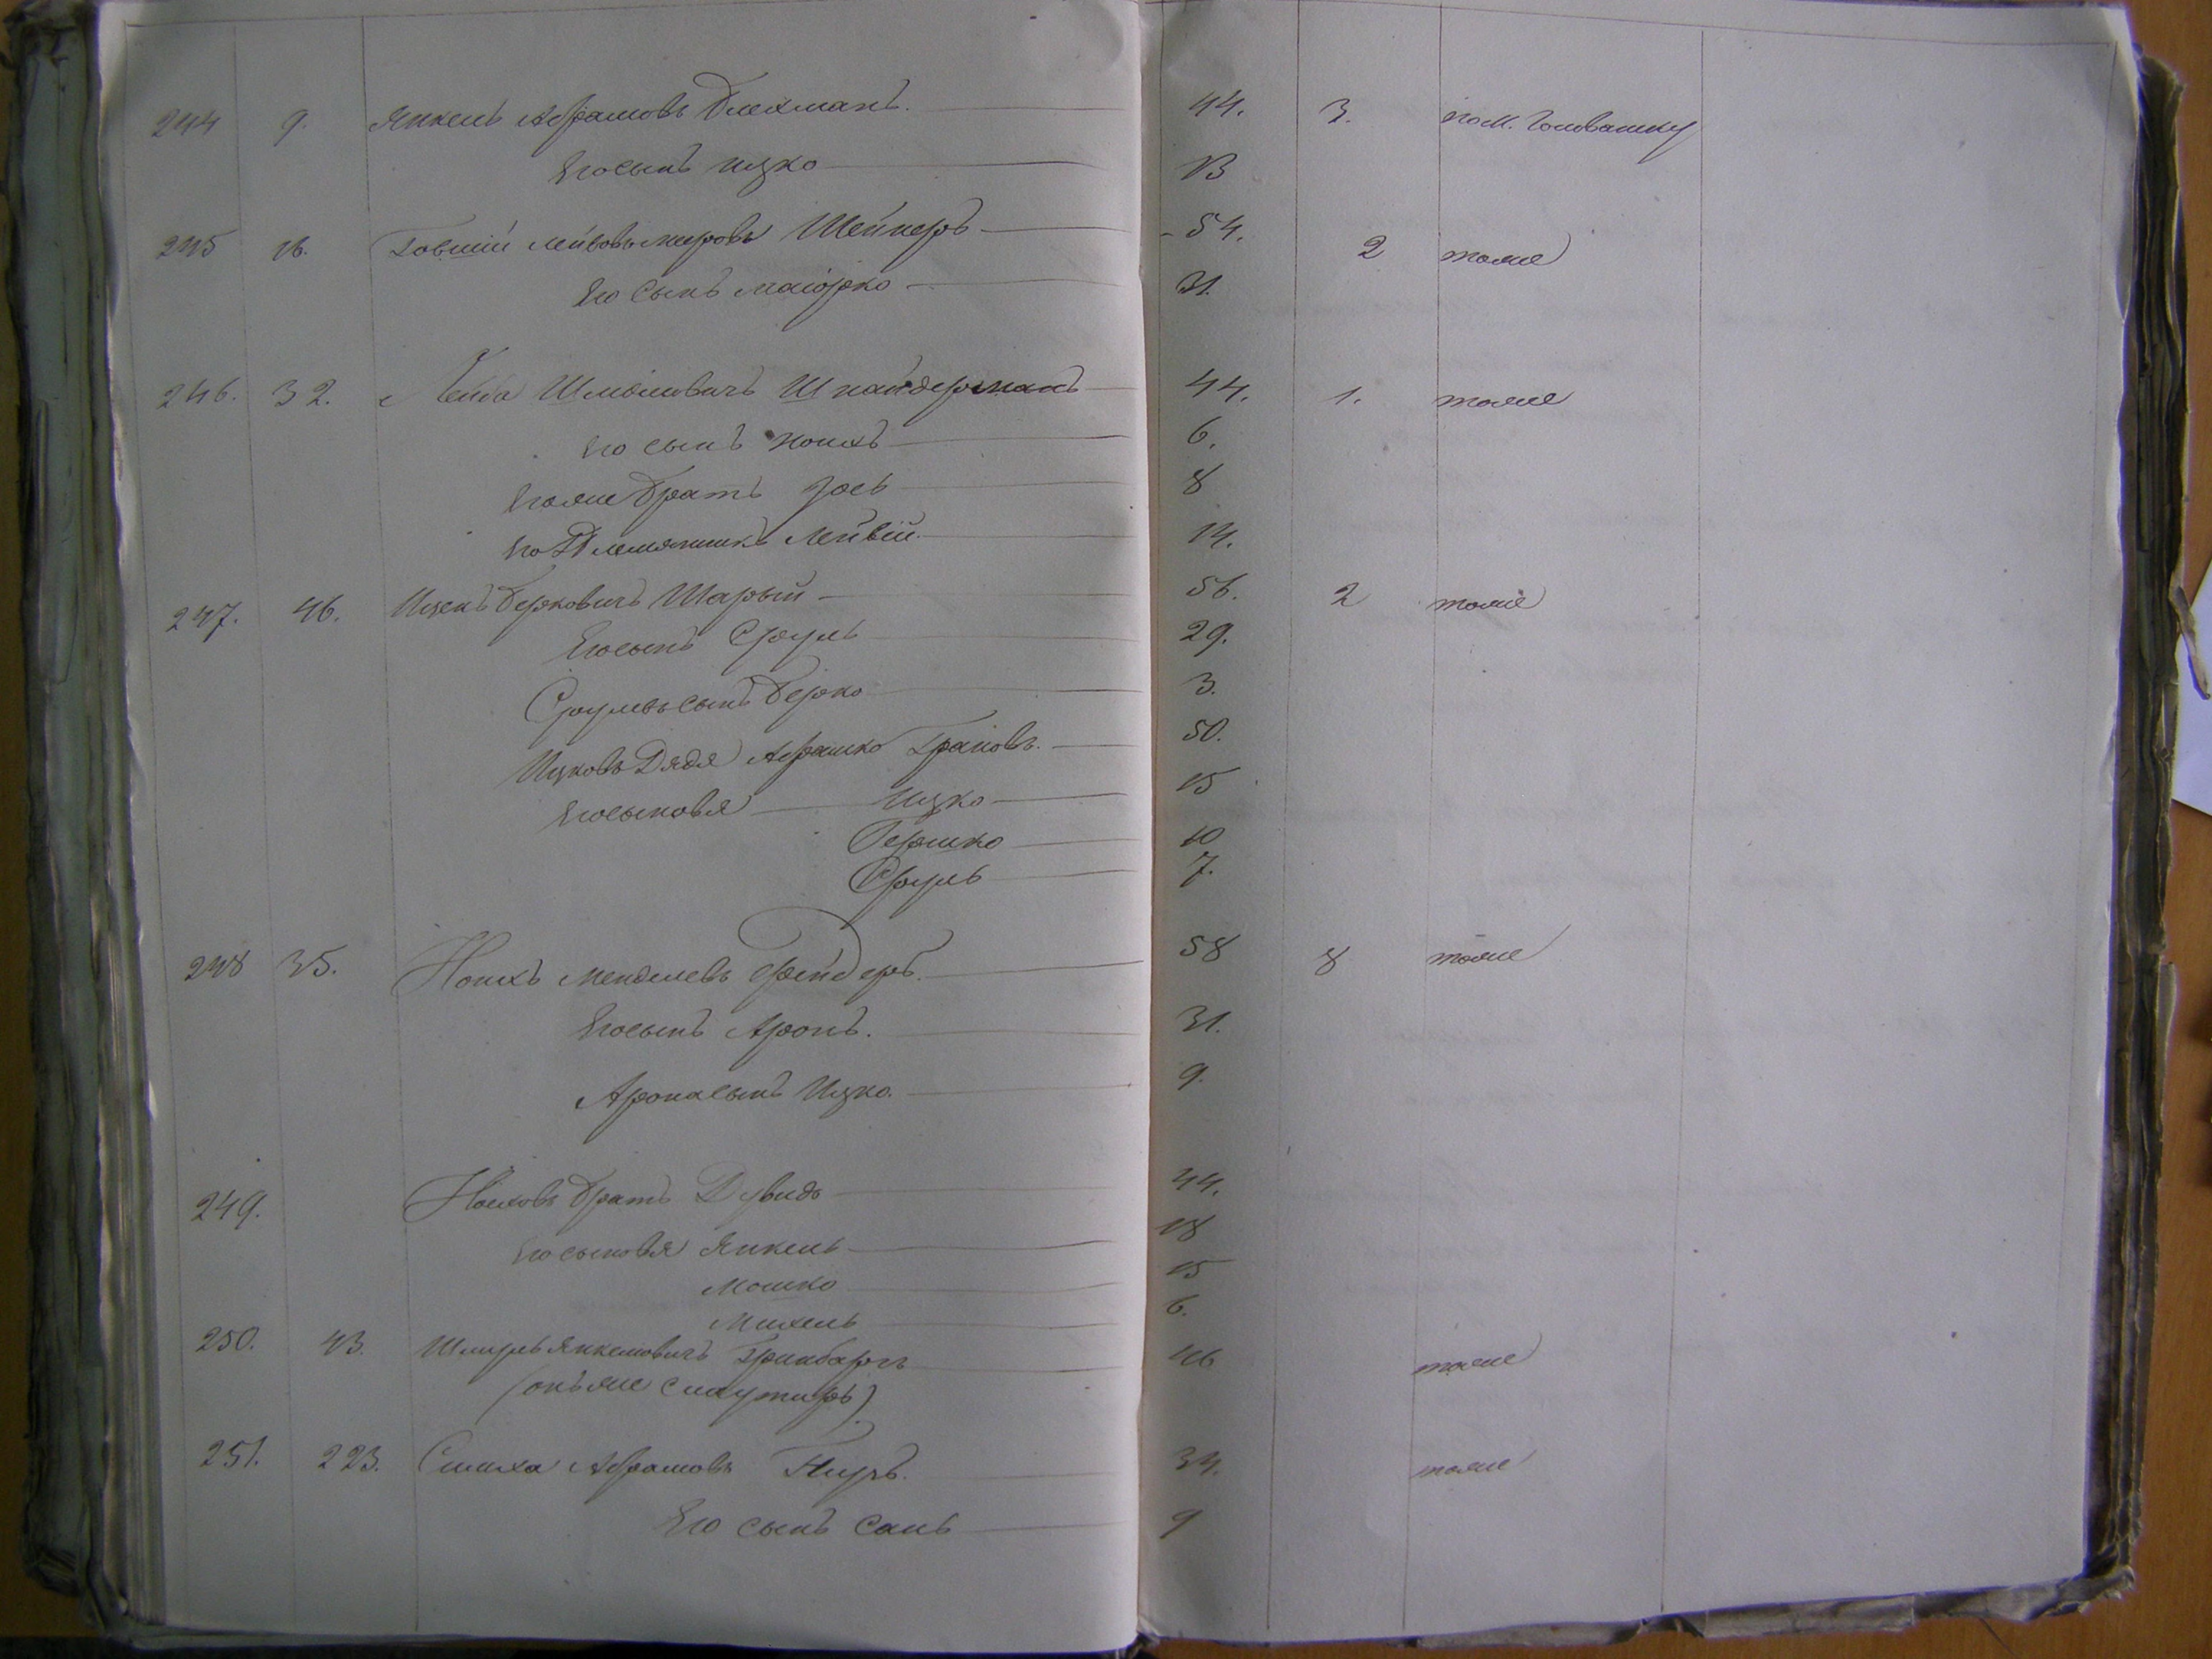 244 9. Янкель Абрамовъ Блехманъ. 44. 3. пом. Головашку
Его сынъ Ицко 13
245 16. Говшій Лейбовъ Шейнеръ 54. 2 тоже
Его сынъ Маіорко 31.
246. 32. Лейба Шмойловичъ Шнайдерманъ 44. 1. тоже
Его сынъ Ноихъ 6.
Его же братъ Іось 8
Его Племянникъ Лейвій 14.
247. 46. Ицекъ Берковичъ Шарый 56. 2 тоже
Его сынъ Сруль 29.
Срулевъ сынъ Берко 3.
Ицковъ Дядя Абрашко 50.
Его сыновя Ицко 15
Гершко 10
Сруль 7.
248 35. Ноихъ Менделевъ 58 8 тоже
Его сынъ Аронъ. 31.
Арона сынъ Ицко. 9.
249. Ноиховъ братъ Дувидъ 44.
Его сыновя Янкель 18
Мошко 15
Михель 6.
250. 43. Шмуль Янкелович Гринбаргъ 46 тоже
(онъ же)
251. 223. Симха Абрамовъ 34. тоже
Его сынъ 9